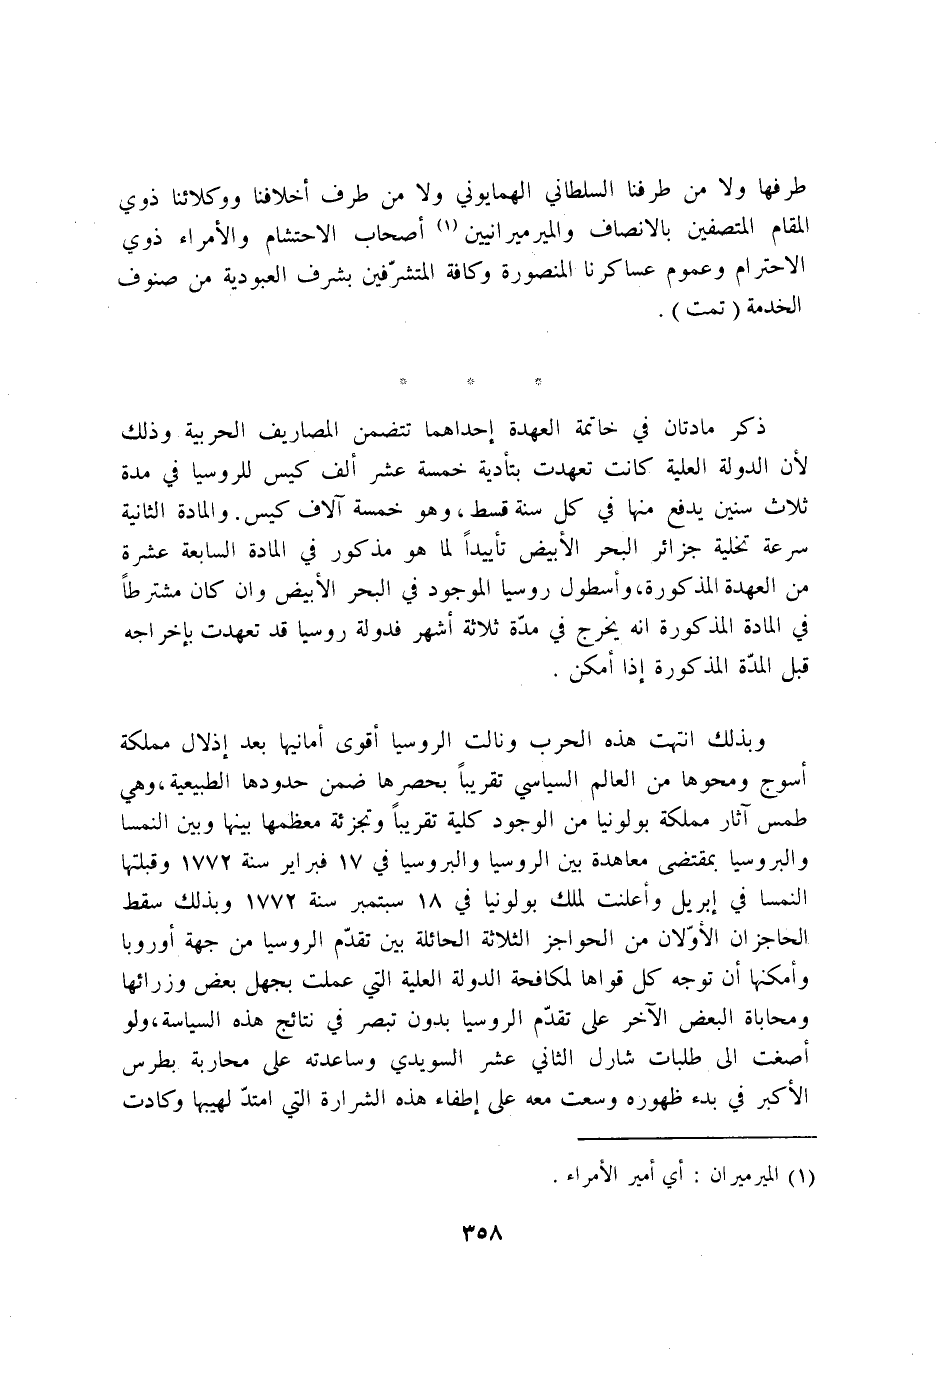 طرفها ولا من طرفنا السلطاني الهمايوني ولا من طرف أخلافنا ووكلائنا ذوي
المقام المتصفين بالانصاف والميرميرانيين (١) أصحاب الاحتشام والأمراء ذوي
الاحترام وعموم عساكرنا المنصورة وكافة المتشرّفين بشرف العبودية من صنوف
الخدمة ( تمت ) .
* * *
ذكر مادتان في خاتمة العهدة إحداهما تتضمن المصاريف الحربية وذلك
لأن الدولة العلية كانت تعهدت بتأدية خمسة عشر ألف كيس للروسيا في مدة
ثلاث سنين يدفع منها في كل سنة قسط ، وهو خمسة آلاف كيس . والمادة الثانية
سرعة تخلية جزائر البحر الأبيض تأييداً لما هو مذكور في المادة السابعة عشرة
من العهدة المذكورة ، وأسطول روسيا الموجود في البحر الأبيض وان كان مشترطاً
في المادة المذكورة انه يخرج في مدّة ثلاثة أشهر فدولة روسيا قد تعهدت بإخراجه
قبل المدّة المذكورة إذا أمكن .
وبذلك انتهت هذه الحرب ونالت الروسيا أقوى أمانيها بعد إذلال مملكة
أسوج ومحوها من العالم السياسي تقريباً بحصرها ضمن حدودها الطبيعية ، وهي
طمس آثار مملكة بولونيا من الوجود كلية تقريباً وتجزئة معظمها بينها وبين النمسا
والبروسيا بمقتضى معاهدة بين الروسيا والبروسيا في ١٧ فبراير سنة ١٧٧٢ وقبلتها
النمسا في إبريل وأعلنت لملك بولونيا في ١٨ سبتمبر سنة ١٧٧٢ وبذلك سقط
الحاجزان الأوّلان من الحواجز الثلاثة الحائلة بين تقدّم الروسيا من جهة أوروبا
وأمكنها أن توجه كل قواها لمكافحة الدولة العلية التي عملت بجهل بعض وزرائها
ومحاباة البعض الآخر على تقدّم الروسيا بدون تبصر في نتائج هذه السياسة ، ولو
أصغت الى طلبات شارل الثاني عشر السويدي وساعدته على محاربة بطرس
الأكبر في بدء ظهوره وسعت معه على إطفاء هذه الشرارة التي امتدّ لهيبها وكادت
(١) الميرميران : أي أمير الأمراء .
٣٥٨